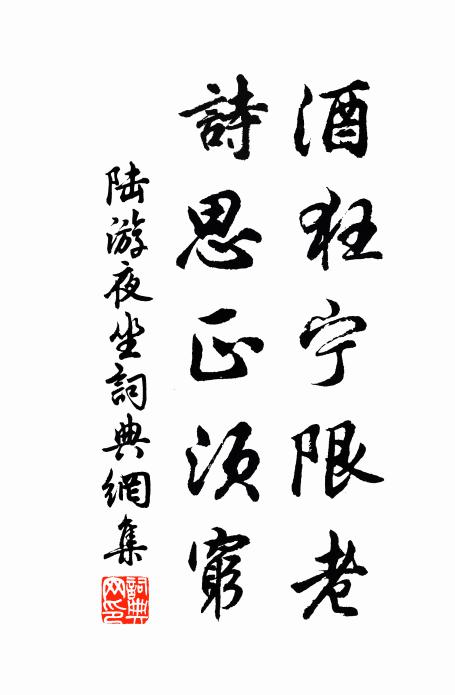 酒狂宁限老
詩思正須窮
陆游夜坐詞典網集
詞典网印